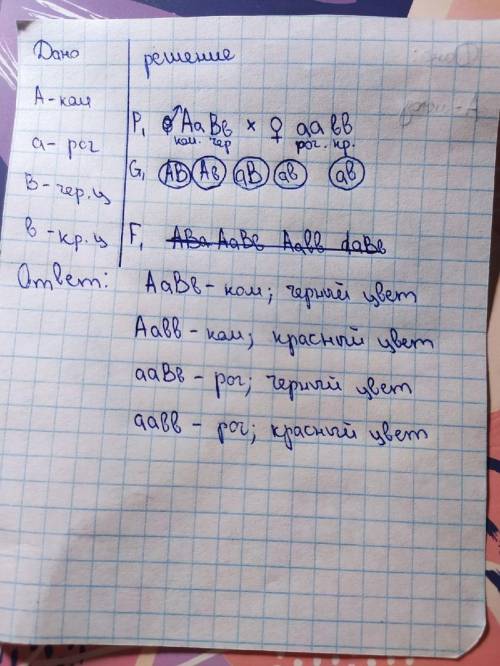 Дано
решение
А - ком
а - рог
В - чер. ц
в - кр. ц
P₁ ♂ АаВв × ♀ аавв
ком. чер рог. кр.
G₁ АВ Ав аВ ав ав
F₁ АВа АаВв Аавв ааВв
Ответ: АаВв - ком; черный цвет
Аавв - ком; красный цвет
ааВв - рог; черный цвет
аавв - рог; красный цвет